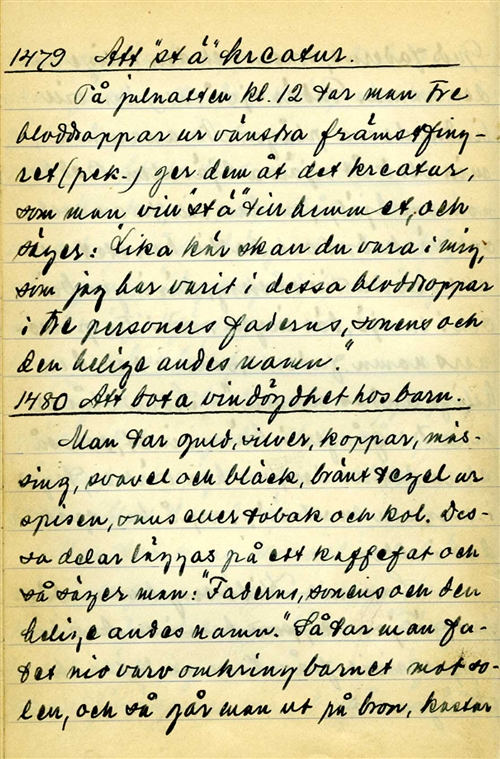 1479 Att "stä" kreatur.
På julnatten kl. 12 tar man tre
bloddroppar ur vänstra främstfing-
ret (pek-) ger dem åt det kreatur,
som man vill "stä" till hemmet, och
säger: "Lika kär skall du vara i mig,
som jag har varit i dessa bloddroppar
i tre personers faderns, sonens och
den helige andes namn."
1480 Att bota vindögdhet hos barn.
Man tar guld, silver, koppar, mäs-
sing, svavel och bläck, bränt tegel ur
spisen, snus eller tobak och kol. Des-
sa delar läggas på ett kaffefat och
så säger man: "Faderns, sonens och den
helige andes namn." Så tar man fa-
tet nio varv omkring barnet mot so-
len, och så går man ut på bron, kastar